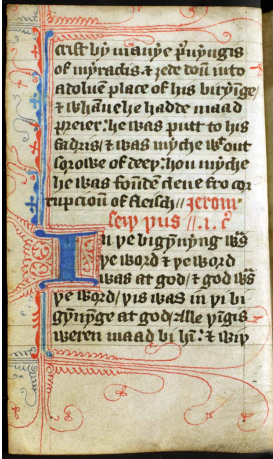 crist by manye p̉uyngis
of myraclis. ⁊ ȝede doũ into
a doluen place of his biryĩge,
⁊ whãne he hadde maad
preier: he was putt to his
fadris, ⁊ was myche wͭout
sorowe of deeþ: hou myche
he was foũdẽ clene fro cor
rupcioũ of fleisch // Jerom
seiþ þus // .i. cͦ
In þe bigẏnẏng was
þe word ⁊ þe word
was at god / ⁊ god was
þe word / þis was in þe bi
gẏnẏge at god / alle þĩgis
weren maad bi hĩ: ⁊ wiþ